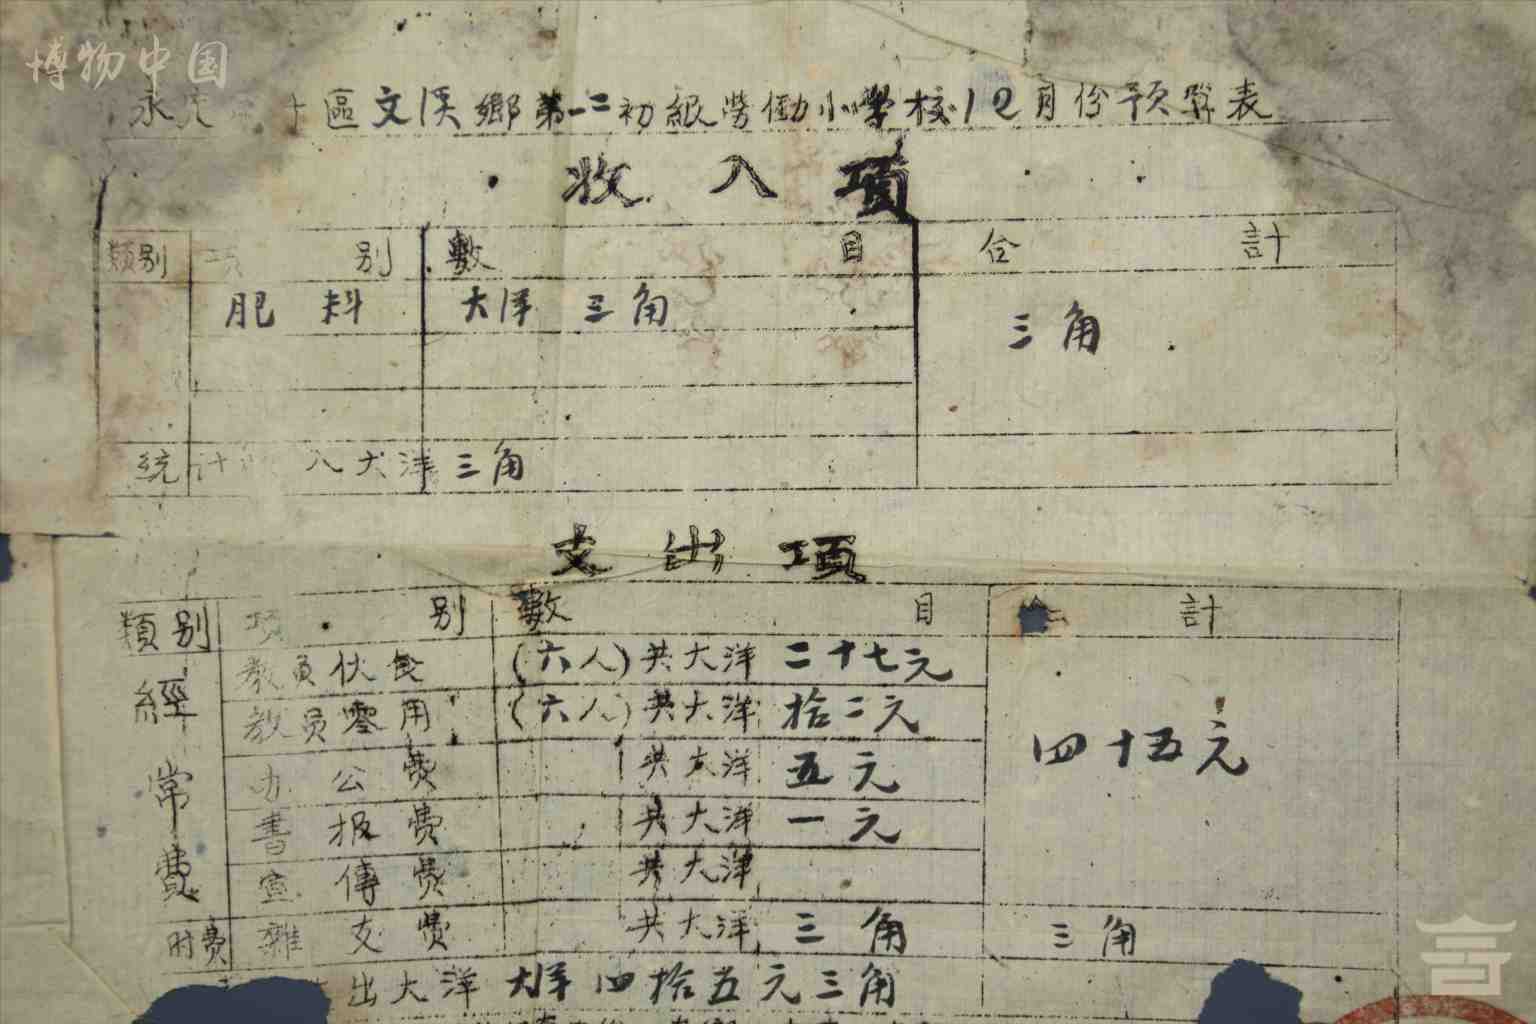 博物中国
永 十區文溪鄉第一二初級勞働小學校12月份預算表
收入項
類別 項別 數目 合計
肥料 大洋 三角 三角
統計 入大洋三角
支出項
類別 項別 數目 計
經常費 教員伙食 (六人)共大洋 二十七元 四十五元
教員零用 (六人)共大洋 拾二元
办公費 共大洋 五元
書报費 共大洋 一元
宣傳費 共大洋
时費 雜支費 共大洋 三角 三角
出大洋 大洋四拾五元三角